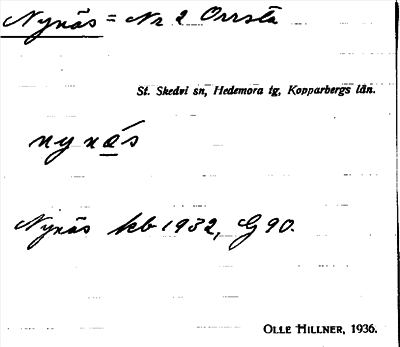 Nynäs = Nr 2 Orrsta
St. Skedvi sn, Hedemora tg, Kopparbergs län.
nynás
Nynäs kb 1932, G 90.
OLLE HILLNER, 1936.